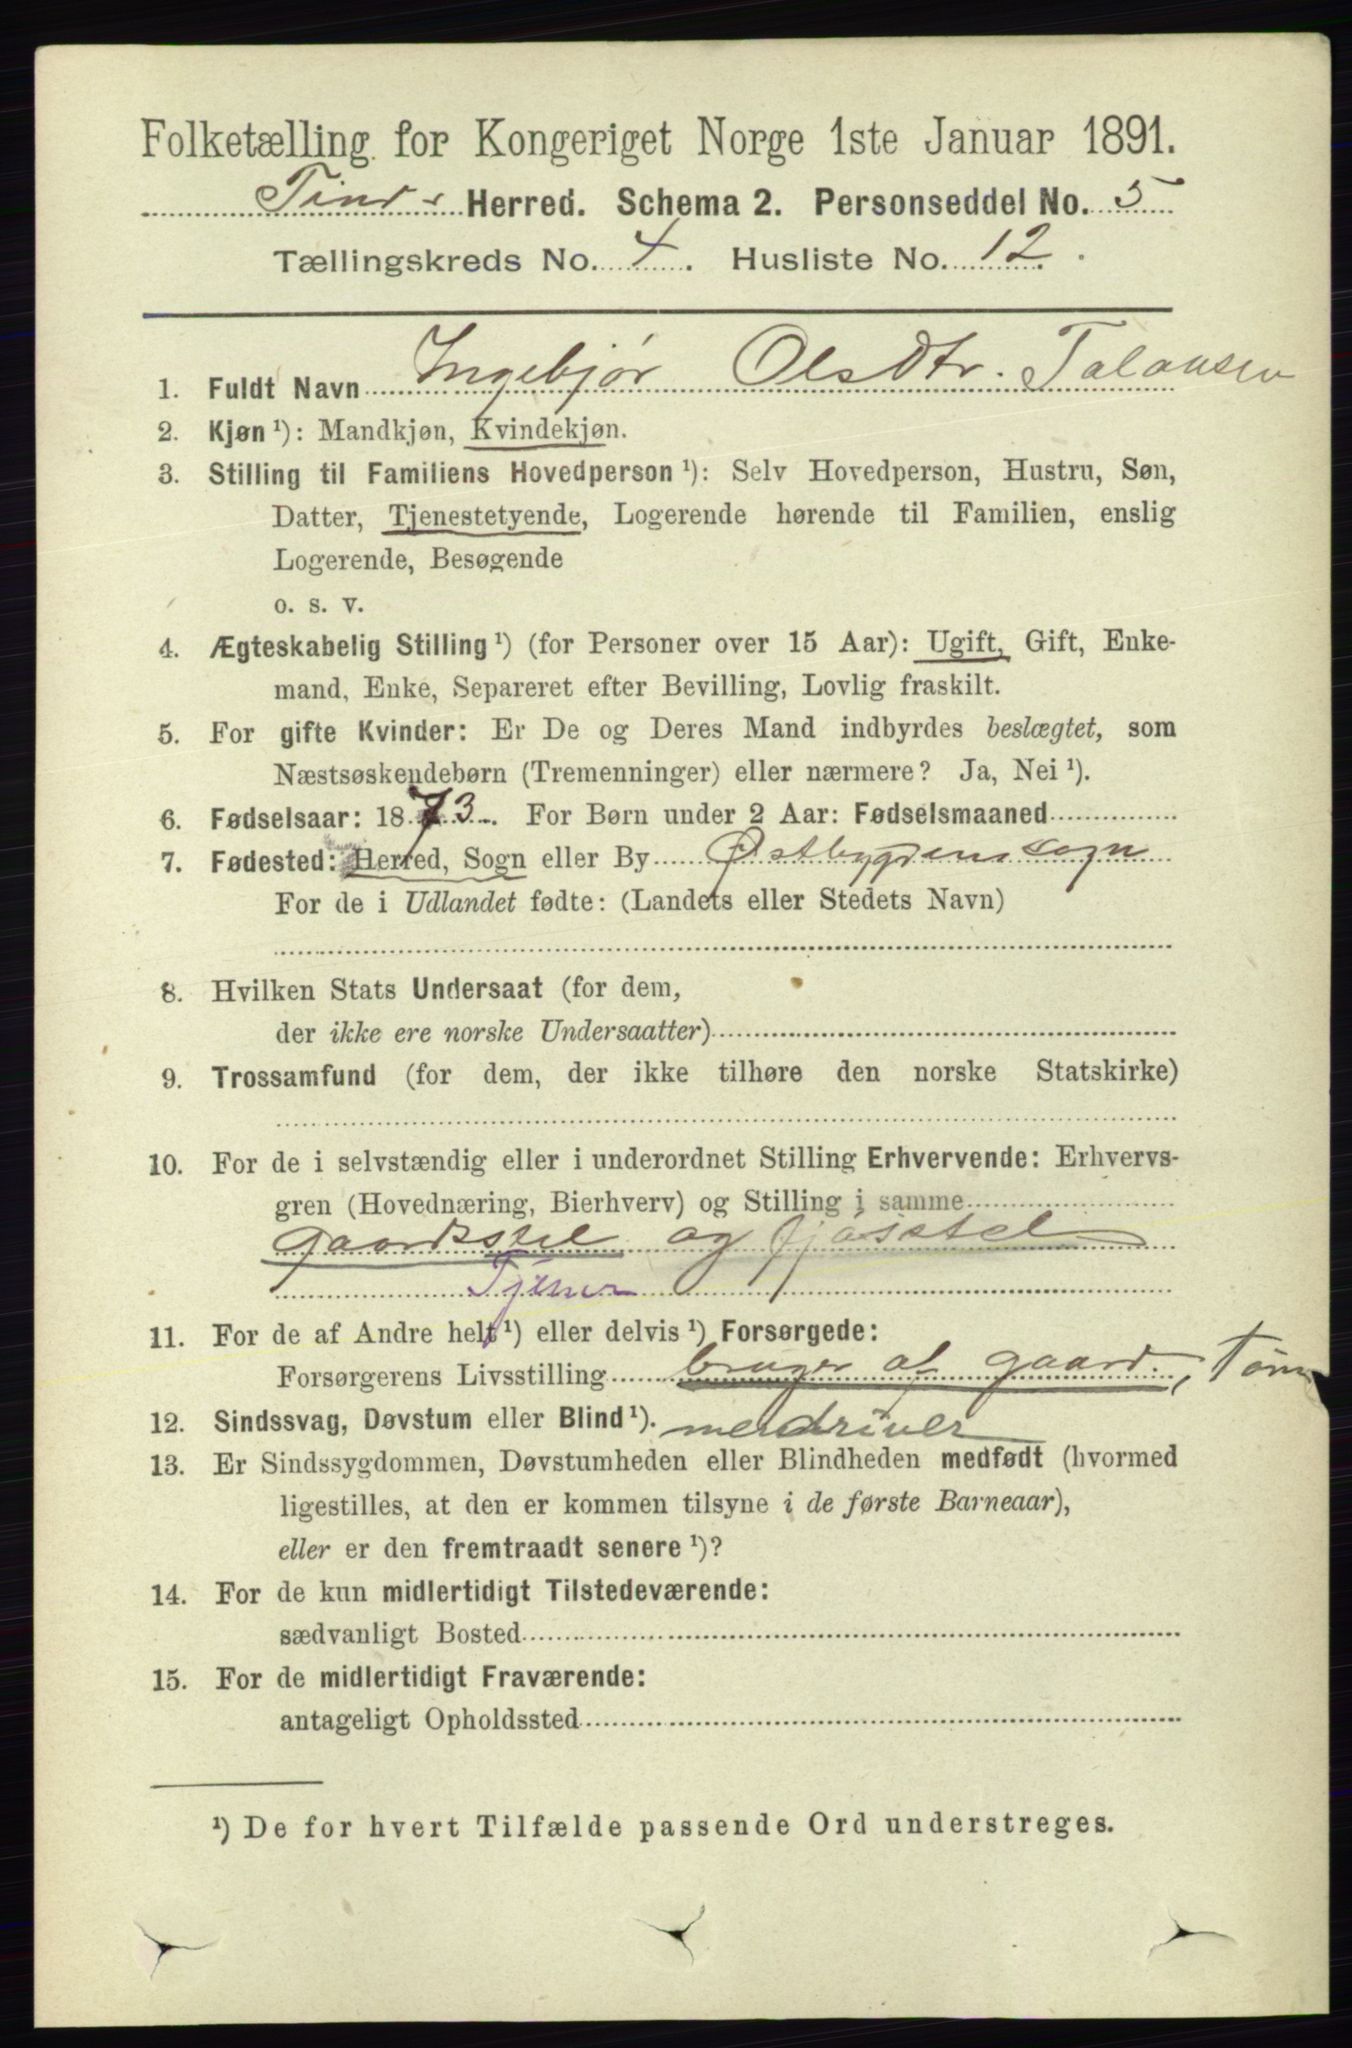 Folketælling for Kongeriget Norge 1ste Januar 1891.
Tinds Herred. Schema 2. Personseddel No. 5
Tællingskreds No. 4. Husliste No. 12.
1. Fuldt Navn Ingebjør OlsDtr.
2. Kjøn ¹): Mandkjøn, Kvindekjøn.
3. Stilling til Familiens Hovedperson ¹): Selv Hovedperson, Hustru, Søn,
Datter, Tjenestetyende, Logerende hørende til Familien, enslig
Logerende, Besøgende
o. s. v.
4. Ægteskabelig Stilling ¹) (for Personer over 15 Aar): Ugift, Gift, Enke-
mand, Enke, Separeret efter Bevilling, Lovlig fraskilt.
5. For gifte Kvinder: Er De og Deres Mand indbyrdes beslægtet, som
Næstsøskendebørn (Tremenninger) eller nærmere? Ja, Nei ¹).
6. Fødselsaar: 1873. For Børn under 2 Aar: Fødselsmaaned
7. Fødested: Herred, Sogn eller By Østbygdens sogn
For de i Udlandet fødte: (Landets eller Stedets Navn)
8. Hvilken Stats Undersaat (for dem,
der ikke ere norske Undersaatter)
9. Trossamfund (for dem, der ikke tilhøre den norske Statskirke)
10. For de i selvstændig eller i underordnet Stilling Erhvervende: Erhvervs-
gren (Hovednæring, Bierhverv) og Stilling i samme
gaardsstel og fjøsstel
Tjener
11. For de af Andre helt ¹) eller delvis ¹) Forsørgede:
Forsørgerens Livsstilling bruger af gaard, Tøm
12. Sindssvag, Døvstum eller Blind ¹). merdriver
13. Er Sindssygdommen, Døvstumheden eller Blindheden medfødt (hvormed
ligestilles, at den er kommen tilsyne i de første Barneaar),
eller er den fremtraadt senere ¹)?
14. For de kun midlertidigt Tilstedeværende:
sædvanligt Bosted
15. For de midlertidigt Fraværende:
antageligt Opholdssted
¹) De for hvert Tilfælde passende Ord understreges.